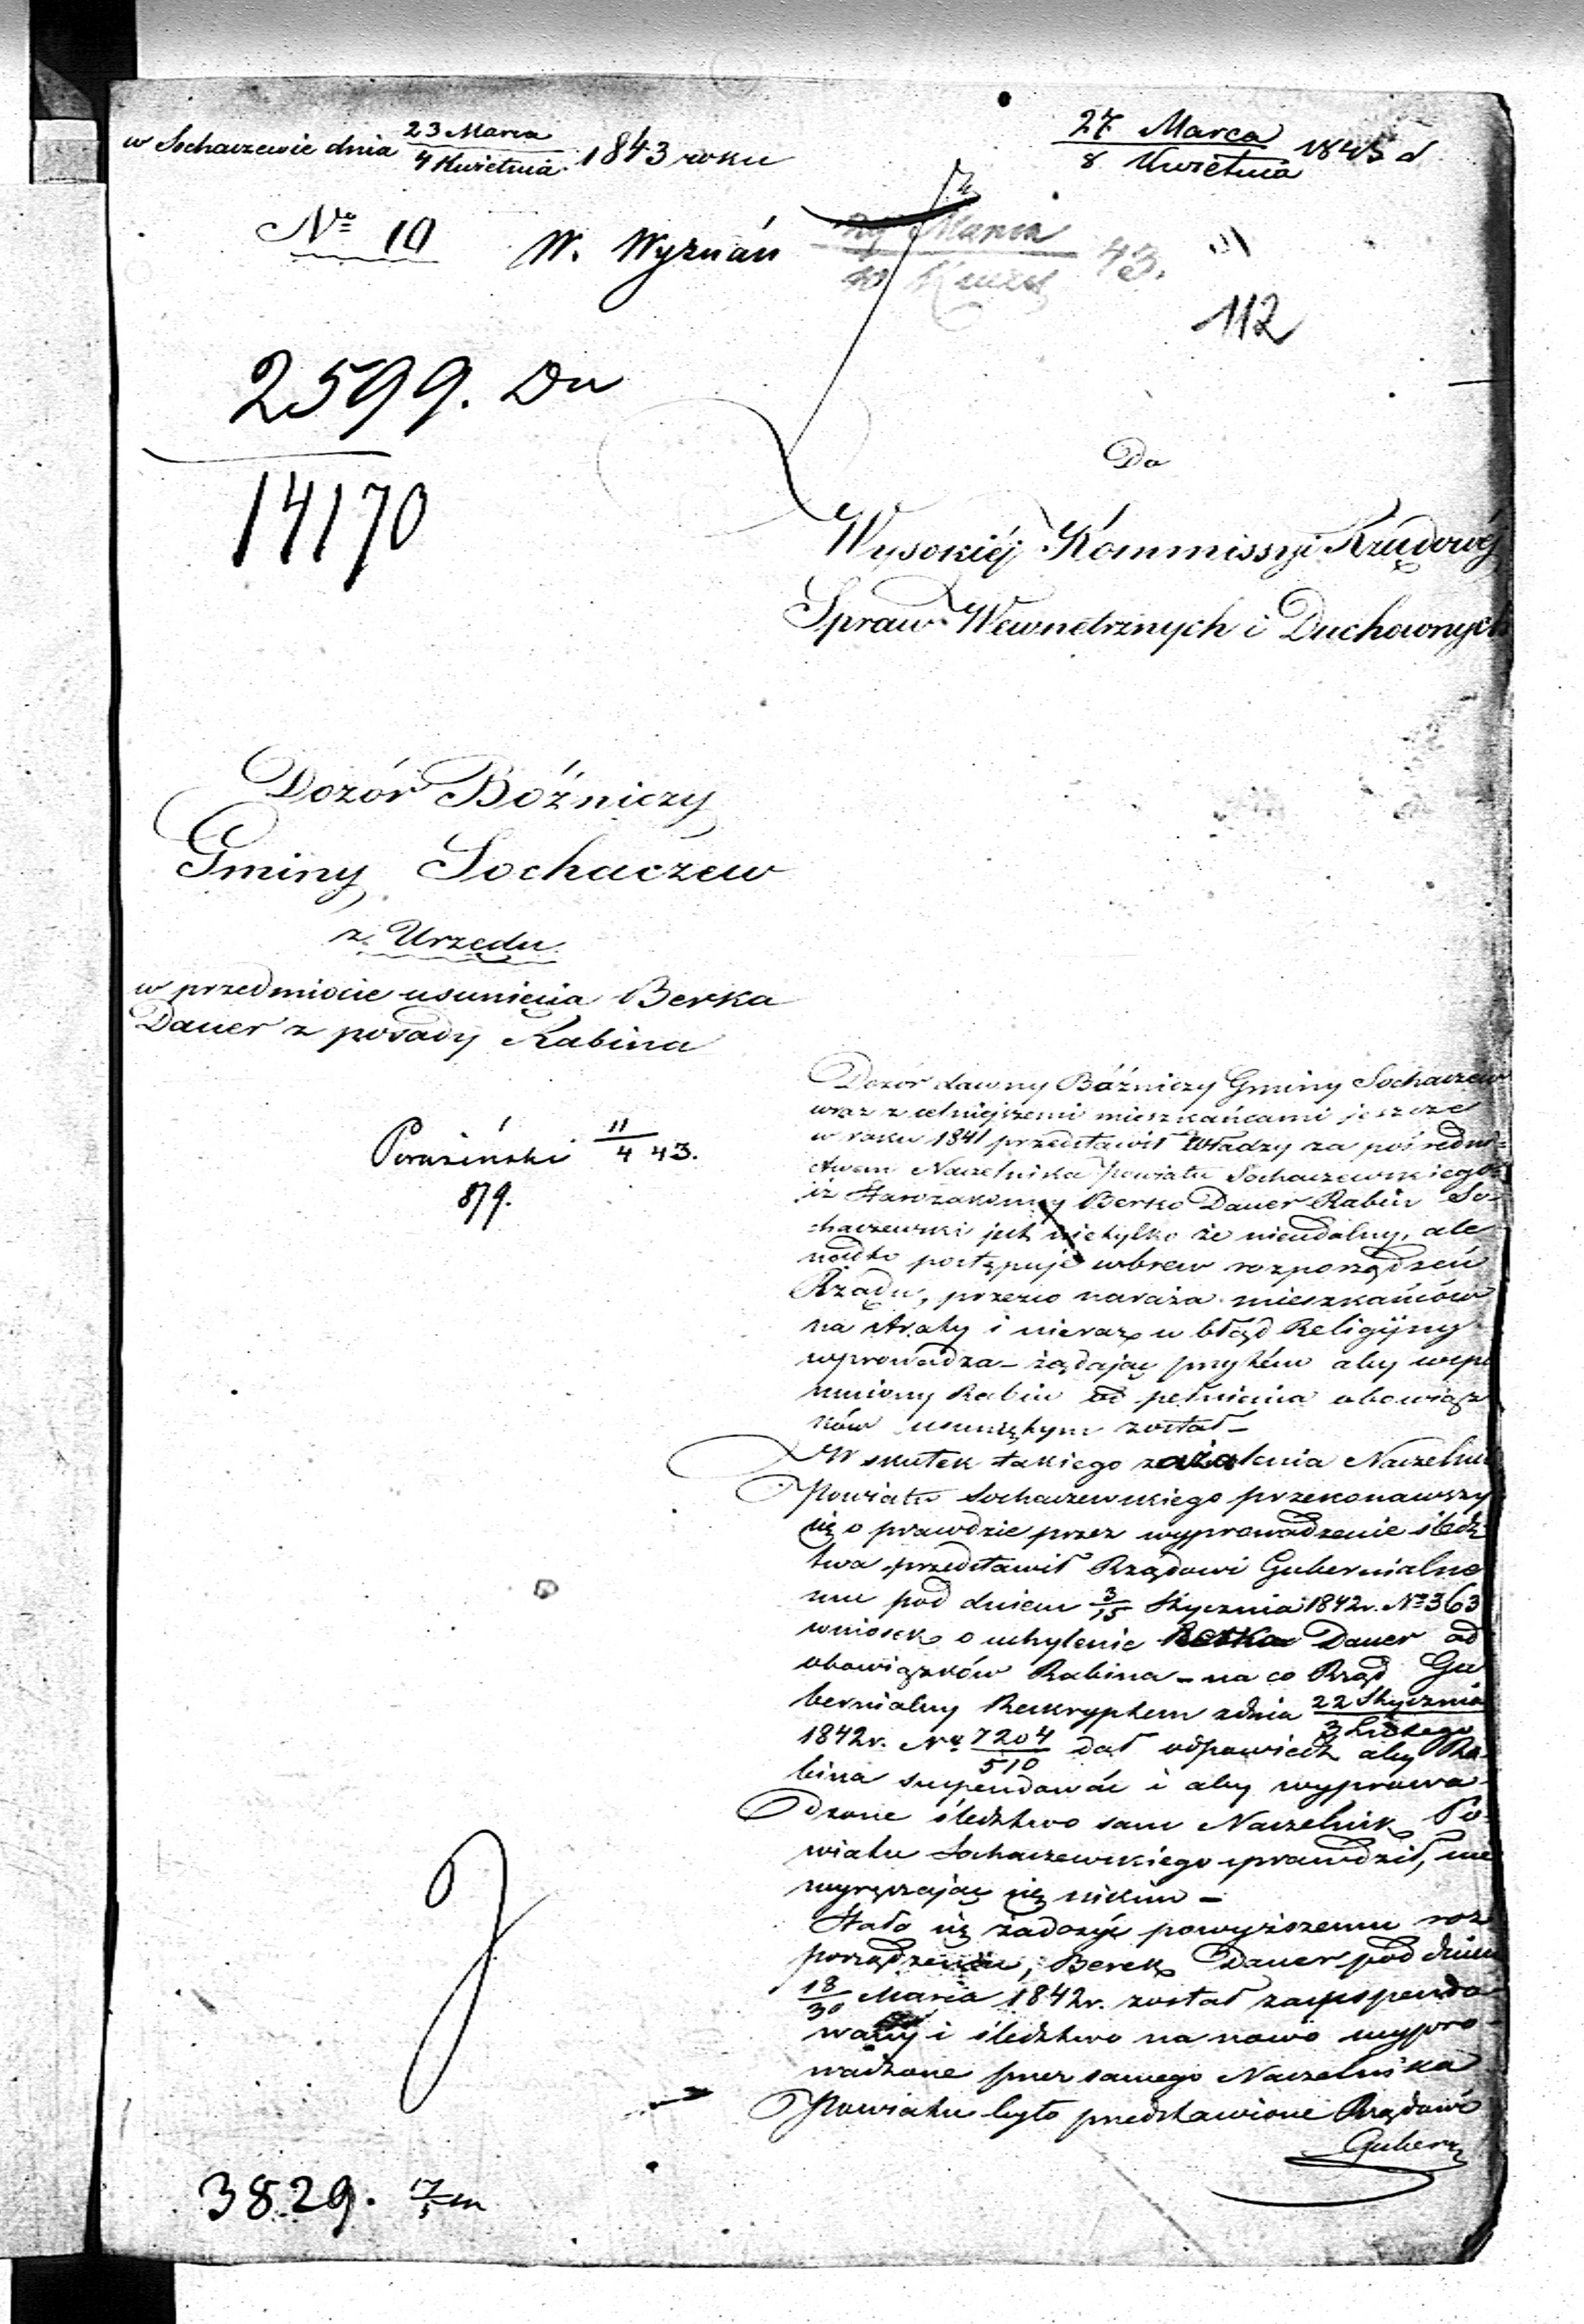 w Sochaczewie dnia 23 Marca / 4 Kwietnia 1843 roku
27 Marca / 8 Kwietnia 1843 d
No 10 W. Wyznań
Marca / Kwiet 43.
112
2599. Du
14170
Do
Wysokiéj Kommissyi Rządowéj
Spraw Wewnętrznych i Duchownych
Dozór Bóżniczy
Gminy Sochaczew
z Urzędu
w przedmiocie usunięcia Berka
Dauer z posady Rabina
11/4 43.
879.
Dozór dawny Bóżniczy Gminy Sochaczew
wraz z celniejszemi mieszkańcami jeszcze
w roku 1841 przedstawił Władzy za pośredni=
ctwem Naczelnika Powiatu Sochaczewskiego
iż Starozakonny Berko Dauer Rabin So=
chaczewski jest nietylko że nieudolny, ale
nadto postępuje wbrew rozporządzeń
Rządu, przezco naraża mieszkańców
na straty i nieraz w błąd Religijny
wprowadza – żądając przytém aby wspo
mniony Rabin od pełnienia obowiąz
ków usuniętym został –
W skutek takiego zażalenia Naczelnik
Powiatu Sochaczewskiego przekonawszy
się o prawdzie przez wyprowadzenie śledz
twa przedstawił Rządowi Gubernialne
mu pod dniem 3/15 Stycznia 1842 r. No 363
wniosek o uchylenie Berka Dauer od
obowiązków Rabina – na co Rząd Gu
bernialny Reskryptem z dnia 22 Stycznia / 3 Lutego
1842 r. No 7204/510 dał odpowiedź aby Ra=
bina suspendować i aby wyprowa=
dzone śledztwo sam Naczelnik Po=
wiatu Sochaczewskiego sprawdził, nie
wyręczając się nikim –
Stało się zadosyć powyższemu roz
porządzeniu, Berek Dauer pod dniem
18/30 Marca 1842 r. został zasuspendo
wany i śledztwo na nowo wypro=
wadzone przez samego Naczelnika
Powiatu było przedstawione Rządowi
Gubern
3829.